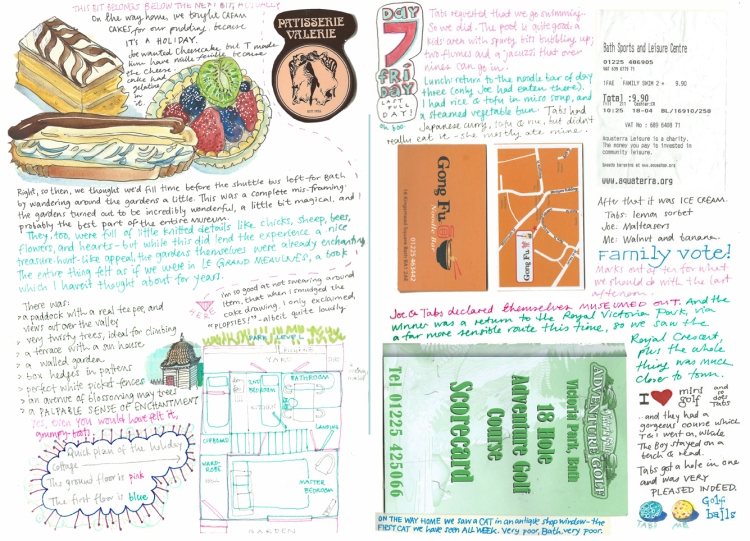 THIS BIT BELONGS BELOW THE NEXT BIT, ACTUALLY
On the way home, we bought CREAM
CAKES, for our pudding, because
IT'S A HOLIDAY.
Joe wanted Cheesecake but I made
him have mille feuille because
the cheese
cake had
gelatine
in
it.
PATISSERIE
VALERIE
Right, so then, we thought we'd fill time before the shuttle bus left for Bath
by wandering around the gardens a little. This was a complete mis-framing:
the gardens turned out to be incredibly wonderful, a little bit magical, and
probably the best part of the entire museum.
They, too, were full of little knitted details like chicks, sheep, bees,
flowers, and hearts - but while this did lend the experience a nice
treasure-hunt-like appeal, the gardens themselves were already enchanting.
The entire thing felt as if we were in LE GRAND MEAULNES, a book
which I haven't thought about for years.
There was:
a paddock with a real teepee, and
views out over the valley
very twisty trees, ideal for climbing
> a terrace with a sun house
> a walled garden
> box hedges in patterns
> perfect white picket fences
> an avenue of blossoming may trees
> a PALPABLE SENSE OF ENCHANTMENT
Yes, even you would have felt it,
grumpy-boots
HERE
I'm so good at not swearing around
Tem, that when I smudged the
cake drawing, I only exclaimed,
"PLOPSIES!" - albeit quite loudly.
Quick plan of the holiday
cottage
The ground floor is pink
The first floor is blue
PARK LEVEL
TABS
2ND
BEDROOM
BATHROOM
KITCHEN
LANDING
CUPBOARD
WARD-
ROBE
MASTER
BEDROOM
GARDEN
DAY
7
FRI
DAY
LAST
FULL
DAY!
Tabs requested that we go swimming.
So we did. The pool is quite good: a
kids area with spurty bits bubbling up;
two flumes and a jacuzzi that over
nines can go in.
Lunch: return to the noodle bar of day
three (only Joe had eaten there).
I had rice & tofu in miso soup, and
a steamed vegetable bun. Tabs had
Japanese curry, tofu & rice, but didn't
really eat it - she mostly ate mine.
Bath Sports and Leisure Centre
01225 486905
VAT 609 6779 71
1FAE FAMILY SWIM 2 + 9.90
Total :9.90
10:25 18-04 BL/16910/258
VAT No : 609 6408 71
Aquaterra Leisure is a charity.
The money you pay is invested in
community leisure.
www.aquaterra.org
Gong Fu
Noodle Bar
01225 463442
Gong Fu
After that it was ICE CREAM.
Tabs: lemon sorbet
Joe: Malteasers
Me: Walnut and banana.
Family vote!
Marks out of ten for what
we should do with the last
afternoon.
Joe & Tabs declared themselves MUSEUMED OUT. And the
winner was a return to the Royal Victoria Park, via
a far more sensible route this time, so we saw the
Royal Crescent,
plus the whole
thing was much
closer to town.
Victoria Park, Bath
18 Hole
Adventure Golf
Course
Scorecard
Tel 01225 425066
ADVENTURE GOLF
I
mini
golf
and
so
does
Tabs
..and they had a
gorgeous course which
T & I went on, while
The Boy stayed on a
bench & read.
Tabs got a hole in one
and was VERY
PLEASED INDEED.
TABS
ME
Golf
balls
ON THE WAY HOME WE SAW A CAT in an antique shop window - the
FIRST CAT we have seen ALL WEEK. Very poor, Bath, very poor.